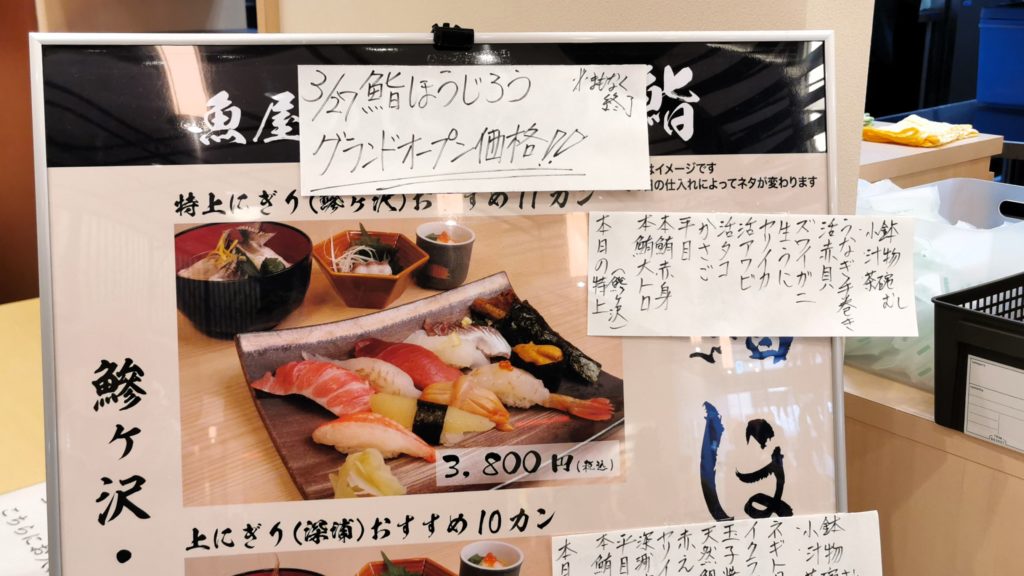 魚屋
鮨
3/27 鮨ほうじろう
グランドオープン価格!!
まもなく
終了
はイメージです
の仕入れによってネタが変わります
特上にぎり(鰺ヶ沢)おすすめ11カン
小鉢
汁物
茶碗むし
うなぎ手巻き
活赤貝
ズワイガニ
生うに
ヤリイカ
活アワビ
活タコ
かさご
平目
本鮪赤身
本鮪大トロ
本日の特上(鰺ヶ沢)
鰺ヶ沢・
ほ
3,800円(税込)
上にぎり(深浦)おすすめ10カン
小鉢
汁物
茶碗む
ネギト
イクラ
玉子焼
天然鯛
赤え
ヤリイ
深浦
平目
本鮪
本日
こちらにお